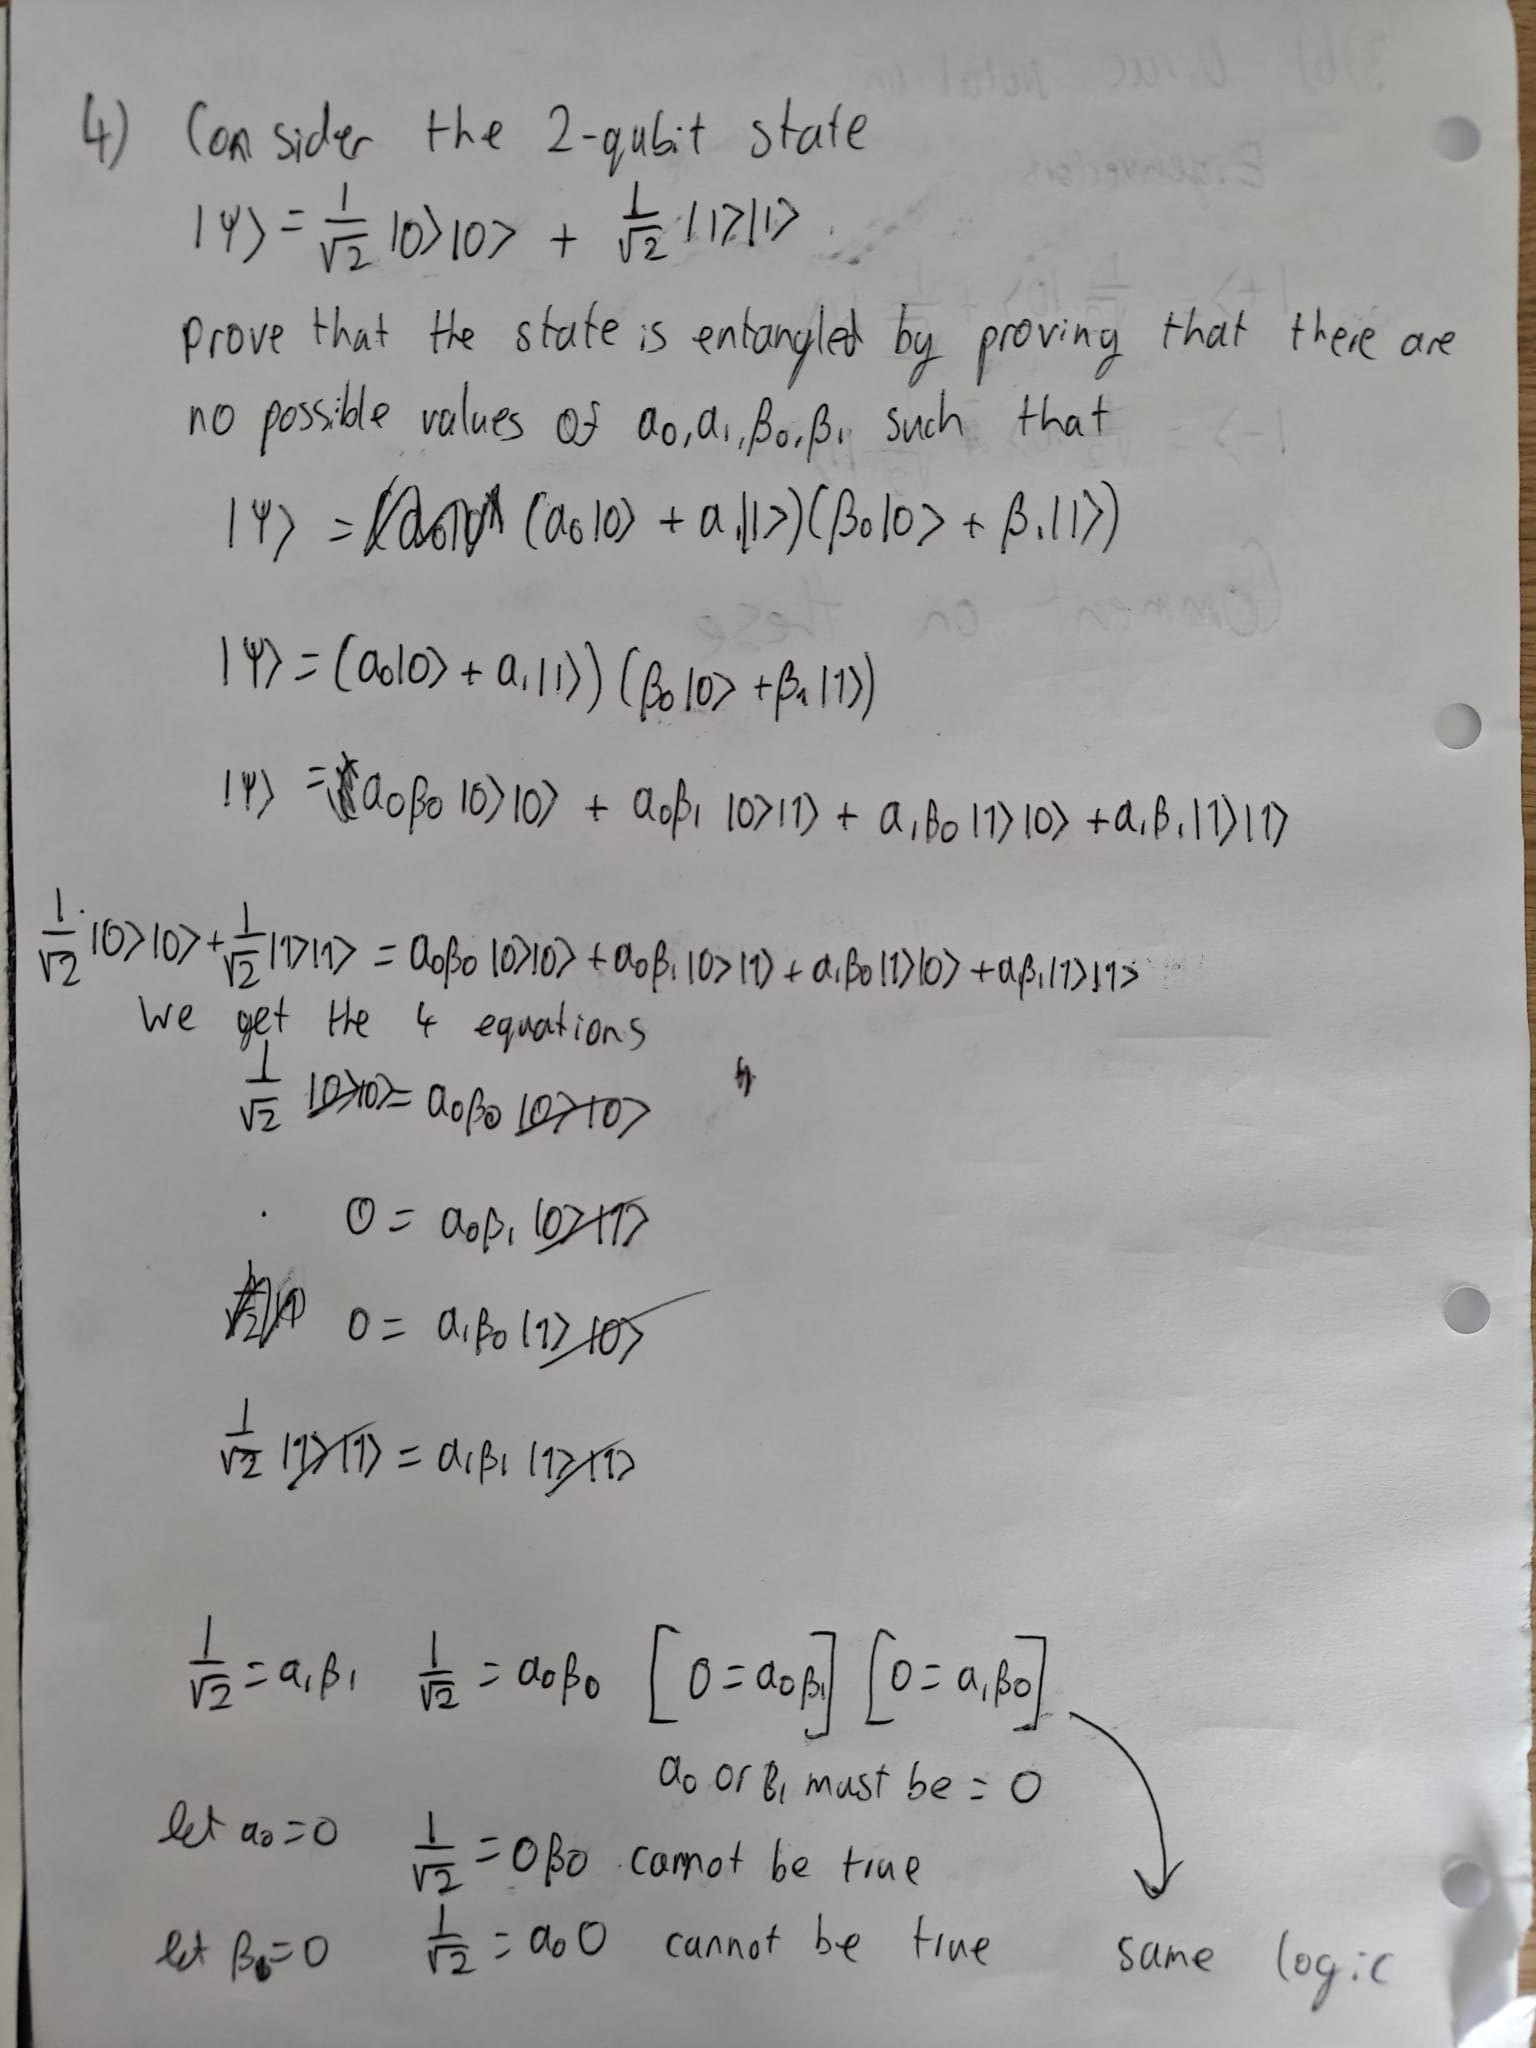 4) Consider the 2-qubit state
|ψ> = 1/√2 |0>|0> + 1/√2 |1>|1>
Prove that the state is entangled by proving that there are
no possible values of a₀, a₁, β₀, β₁ such that
|ψ> = (a₀|0> + a₁|1>)(β₀|0> + β₁|1>)
|ψ> = (a₀|0> + a₁|1>)(β₀|0> + β₁|1>)
|ψ> = a₀β₀|0>|0> + a₀β₁|0>|1> + a₁β₀|1>|0> + a₁β₁|1>|1>
1/√2 |0>|0> + 1/√2 |1>|1> = a₀β₀|0>|0> + a₀β₁|0>|1> + a₁β₀|1>|0> + aβ₁|1>|1>
We get the 4 equations
1/√2 |0>|0> = a₀β₀ |0>|0>
0 = a₀β₁ |0>|1>
0 = a₁β₀ |1>|0>
1/√2 |1>|1> = a₁β₁ |1>|1>
1/√2 = a₁β₁ 1/√2 = a₀β₀ [0 = a₀β₁] [0 = a₁β₀]
a₀ or β₁ must be = 0
let a₀ = 0 1/√2 = 0β₀ cannot be true
let = 0 1/√2 = a₀0 cannot be true same logic